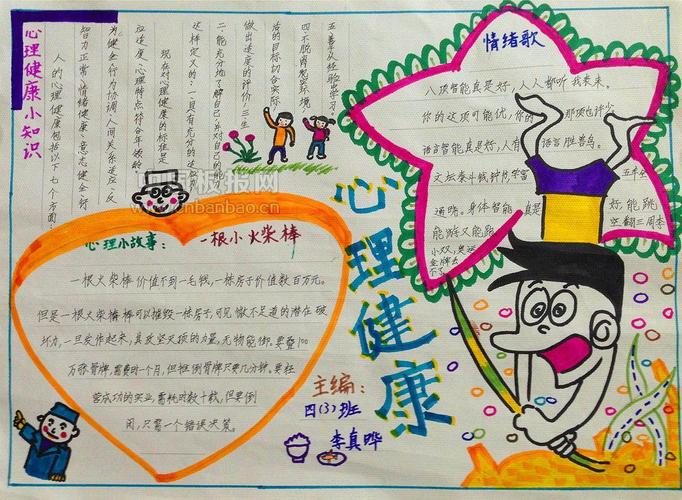 心理健康小知识
人的心理健康包括以下七个方面：
智力正常、情绪健康、意志健全、行
为健全、行为协调、人间关系适应、反
应适度、心理特点符合年龄。
现在对心理健康的标准是
这样定义的：一具有充分的适
二能充分地了解自己，并对自己的能
做出适度的评价。三生
活的目标切合实际
四不脱离现实环境
五善于从经验中学习
心理小故事：一根小火柴棒
一根火柴棒价值不到一毛钱，一栋房子价值数百万元。
但是一根火柴棒可以摧毁一栋房子，可见微不足道的潜在破
坏力，一旦发作起来，其攻坚灭顶的力量，无物能御。要叠100
万张骨牌，需费时一个月，但推倒骨牌只要几分钟。要经
营成功的实业，需耗时数十载，但要倒
闭，只需一个错误决策。
心理健康
主编：
四(3)班
李真晔
情绪歌
八项智能真是好，人人都听我来来。
你的这项可能优，你的那项也许少
语言智能真是好，人有语言胜善鸟。
文坛泰斗钱钟书
通晓。身体智能真是好，能跳
能够又能跑
空翻三周李
小双，奥运
金牌去
不了